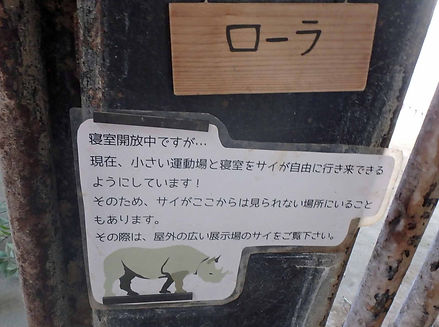 ローラ
寝室開放中ですが…
現在、小さい運動場と寝室をサイが自由に行き来できる
ようにしています！
そのため、サイがここからは見られない場所にいること
もあります。
その際は、屋外の広い展示場のサイをご覧下さい。